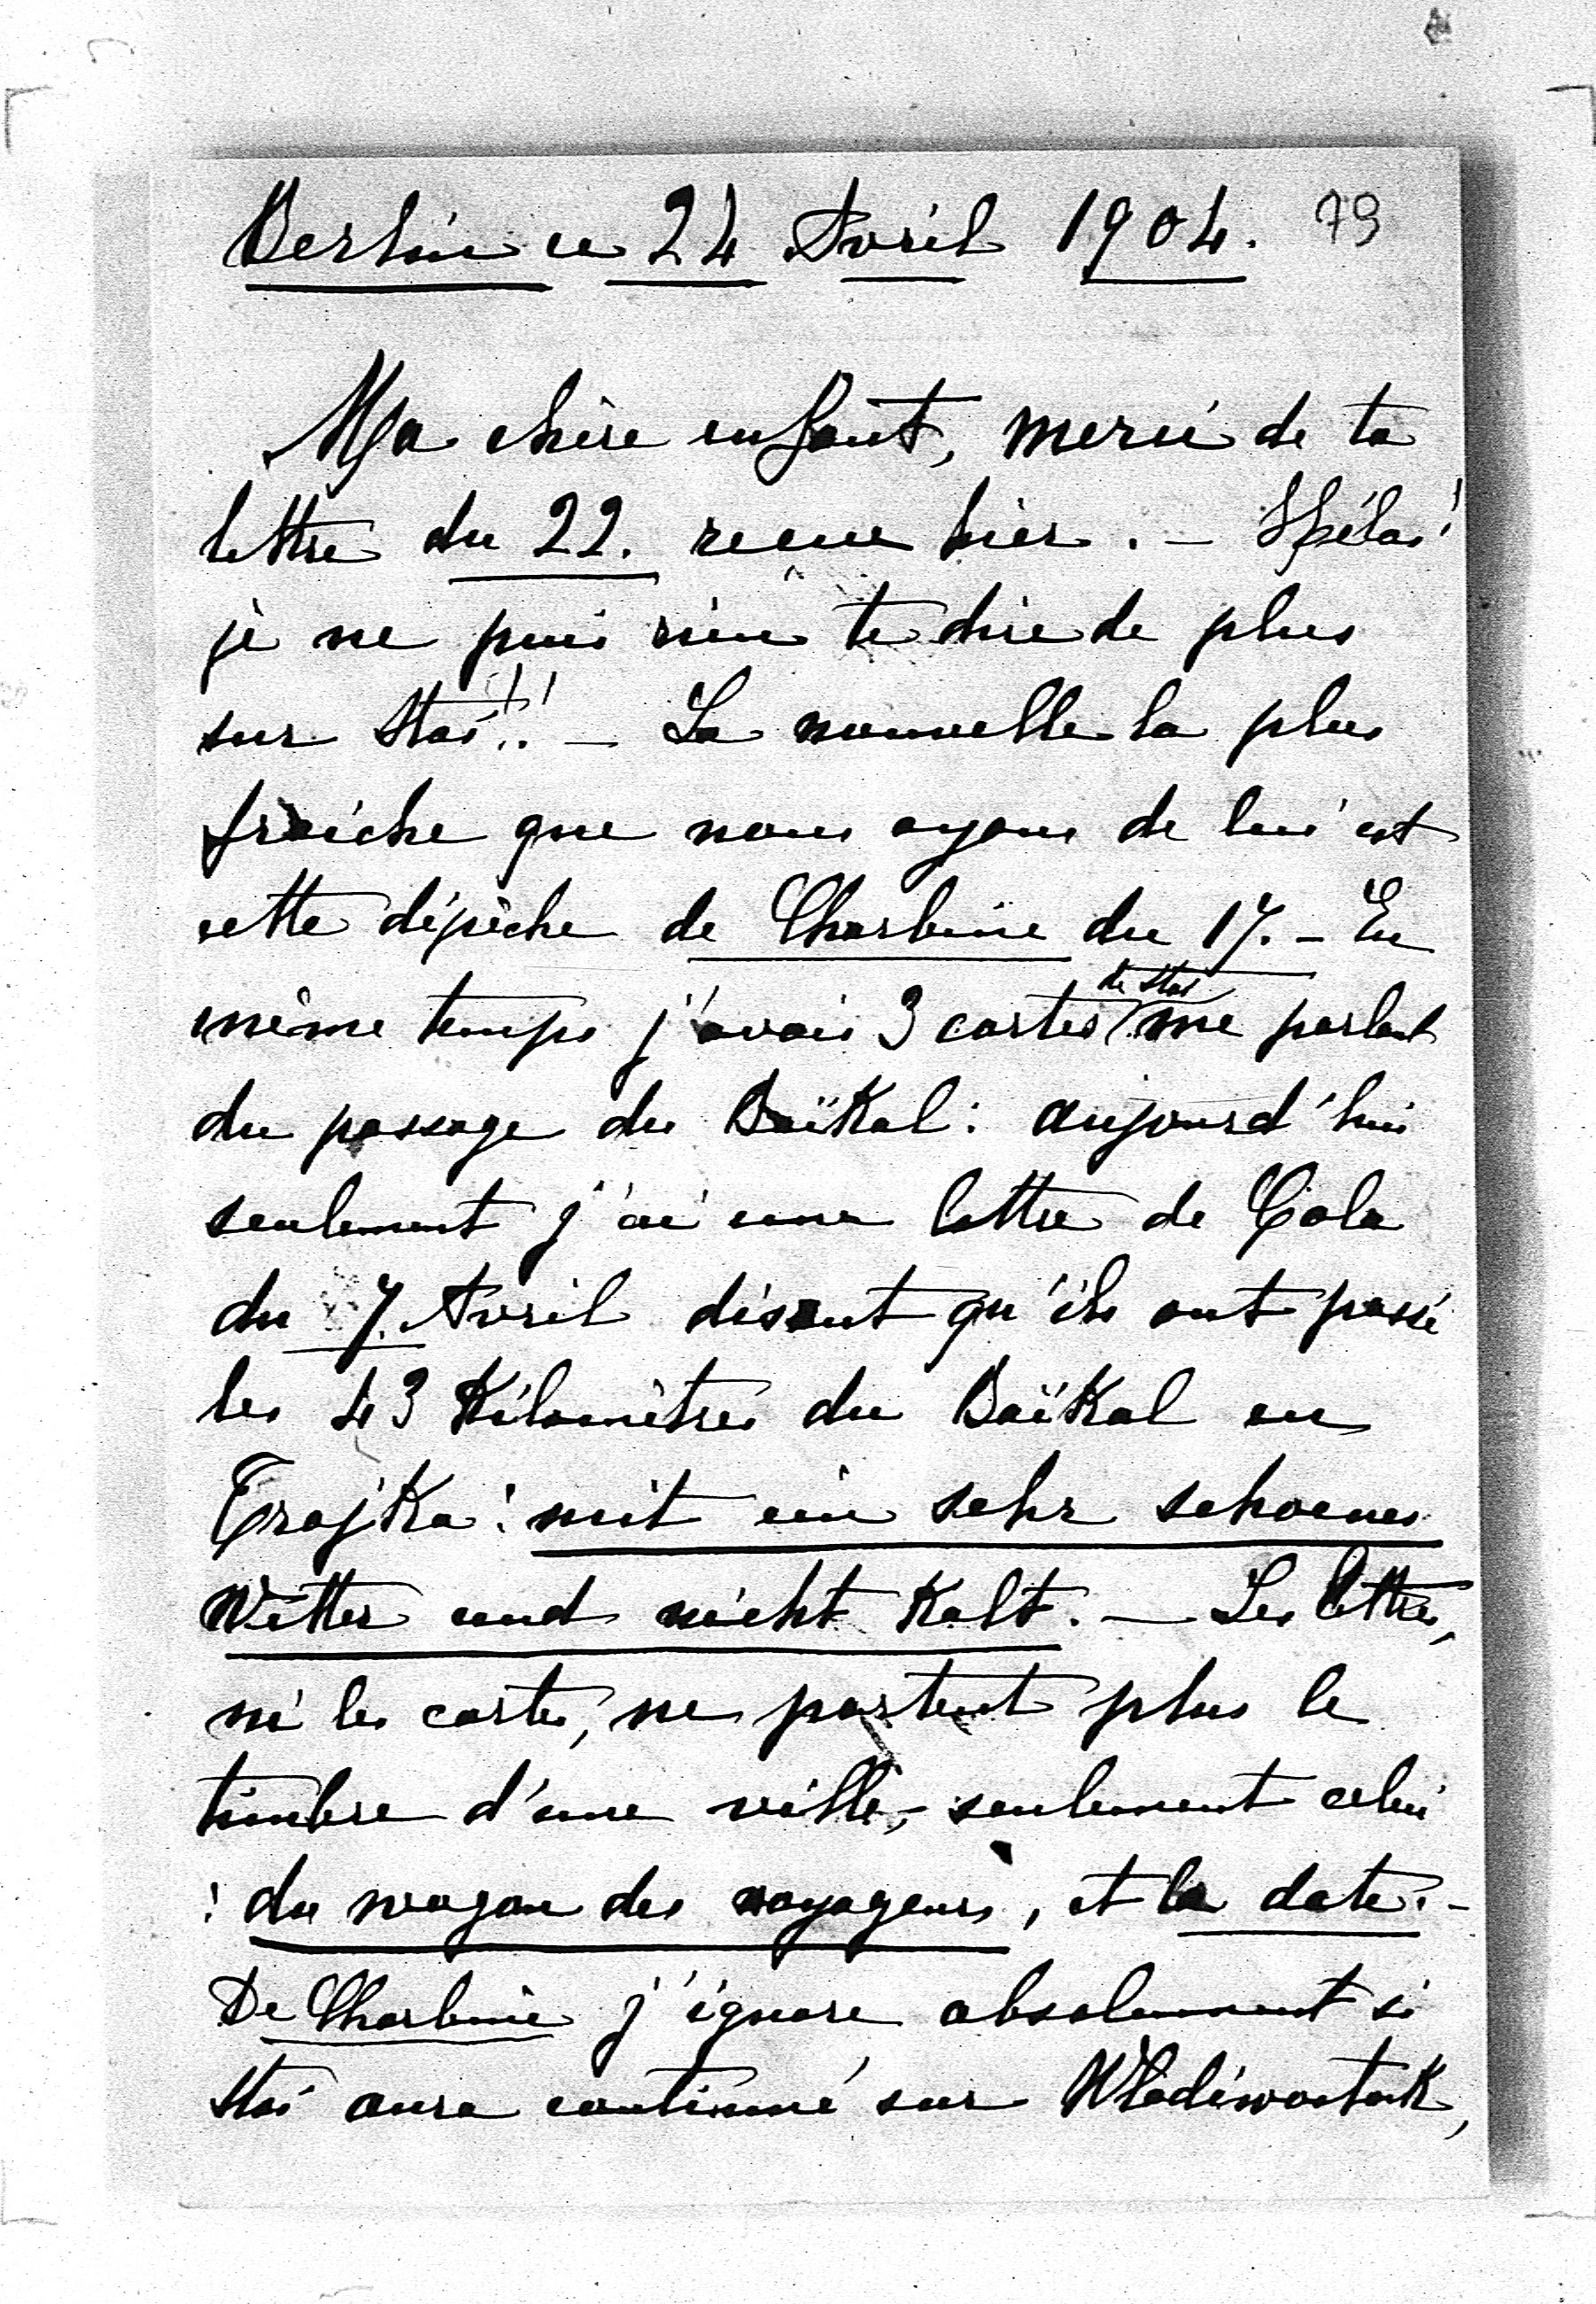 Berlin ce 24 Avril 1904. 79
Ma chère enfant, merci de ta
lettre du 22. reçue hier. – Hélas!
je ne puis rien te dire de plus
sur Stas!! – La nouvelle la plus
fraîche que nous ayons de lui est
cette dépèche de Charbine du 17. – En
même temps j'avais 3 cartes de Stas me parlant
du passage du Baïkal: aujourd'hui
seulement j'ai une lettre de Cola
du 7. Avril disant qu'ils ont passé
les 43 Kilomètres du Baïkal en
Trojka: mit ein sehr schoenes
Wetter und nicht Kalt. – Les lettres,
ni les cartes, ne portent plus le
timbre d'une ville, – seulement celui
: du wagon des voyageurs, et la date. –
De Charbine j'ignore absolument si
Stas aura continué sur Wladiwostok,